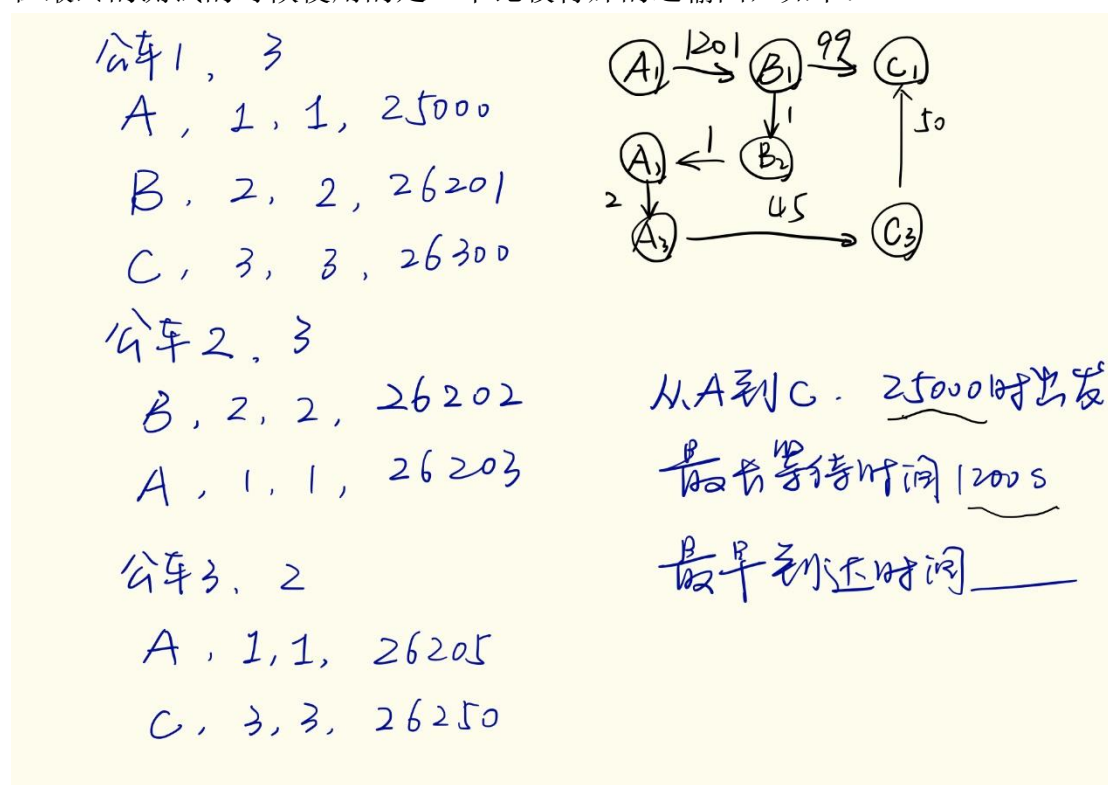 公车1, 3
A, 1, 1, 25000
B, 2, 2, 26201
C, 3, 3, 26300
公车2, 3
B, 2, 2, 26202
A, 1, 1, 26203
公车3, 2
A, 1, 1, 26205
C, 3, 3, 26250
A1 1201 B1 99 C1
1 50
A2 1 B2
2 45
A3 C3
从A到C. 25000时出发
最长等待时间1200s
最早到达时间